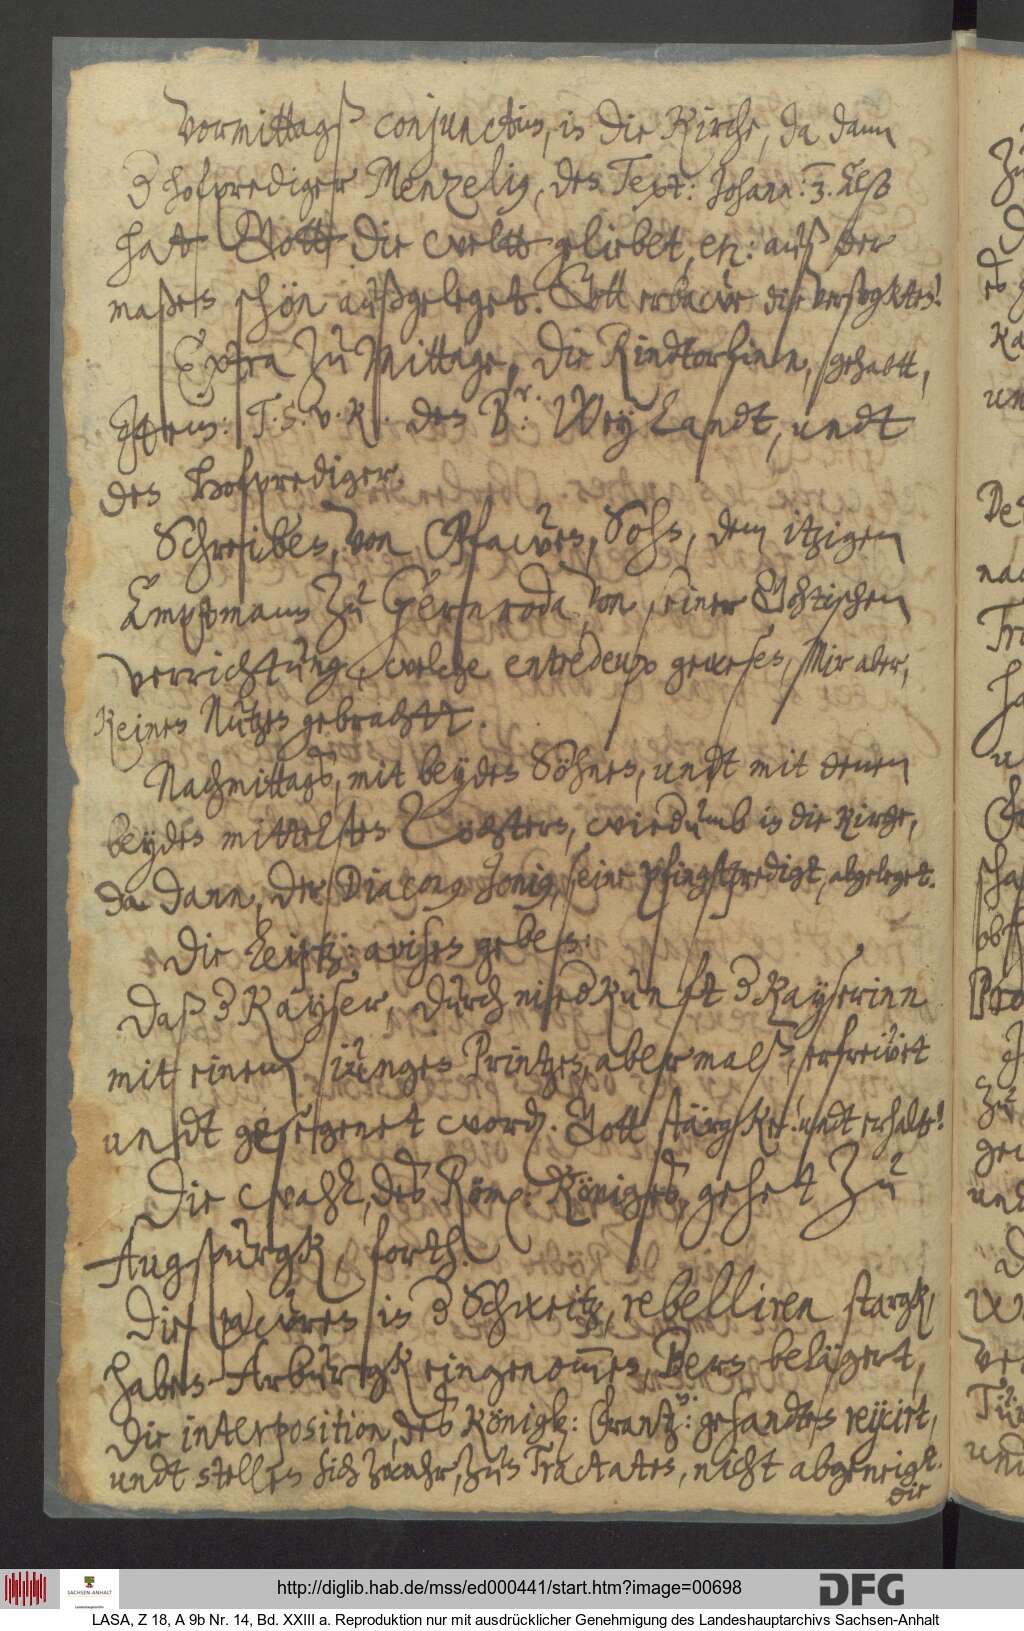 Vormittags conjunctim, in die Kirche, da dann
d hofprediger Menzelig, den Text: Johann: 3. Alß
hat Gott die weltt geliebet, etc: auß der
maßen schön außgeleget. Gott erbawe die versogkten!
Extra zu Mittage, die Rindtorfinn, gehabtt,
Jttem: T. S. v. R. den Br: Weylandt, undt
den Hofprediger.
Schreiben, von Pfawen, Sohn, dem itzigen
Ampttmann zu Gernroda, von seiner
verrichtung, welche entredeux gewesen, Mir aber,
keinen Nutzen gebrachtt.
Nachmittags, mit beyden Söhnen, undt mit denen
beyden mittelsten Töchtern, wiedumb in die Kirche,
da dann, der Diacony Jonig, seine pfingstpredigt, abgeleget.
Die Leiptz: avisen geben:
Daß d Kayser, durch niedkunft d Kayserinn
mit einem jungen Printzen, abermalß, erfrewet
undt gesegenet word. Gott stärgke! undt erhalte!
Die wahl, des Röm: Königes, gehet zu
Augspurgk, forth.
Die pawren in d Schweitz, rebelliren stargk,
haben Arburgk eingenommen, Bern belägert,
die interposition, des Königl: Frantz: gesandten rejicirt,
undt stellen sich zwahr, zun Tractaten, nicht abgeneigt.
die
http://diglib.hab.de/mss/ed000441/start.htm?image=00698
DFG
SACHSEN-ANHALT
LASA, Z 18, A 9b Nr. 14, Bd. XXIII a. Reproduktion nur mit ausdrücklicher Genehmigung des Landeshauptarchivs Sachsen-Anhalt